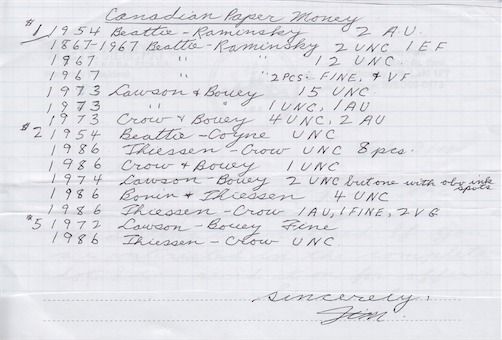 Canadian Paper Money
$1 1954 Beattie-Raminsky 2 AU.
1867-1967 Beattie-Raminsky 2 UNC 1 EF
1967 " " 12 UNC.
1967 " " 2 pcs. FINE, & VF
1973 Lawson & Bouey 15 UNC
1973 " " 1 UNC, 1 AU
1973 Crow & Bouey 4 UNC, 2 AU
$2 1954 Beattie-Coyne UNC
1986 Thiessen-Crow UNC 8 pcs.
1986 Crow & Bouey 1 UNC
1974 Lawson-Bouey 2 UNC but one with obv ink spots
1986 Bonin & Thiessen 4 UNC
1986 Thiessen-Crow 1 AU, 1 FINE, 2 VG
$5 1972 Lawson-Bouey Fine
1986 Thiessen-Crow UNC
sincerely,
Jim